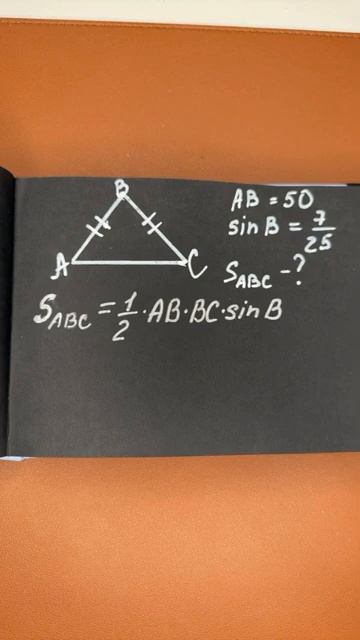 B
A
C
AB = 50
sin B = 7/25
S_ABC - ?
S_ABC = 1/2 · AB · BC · sin B